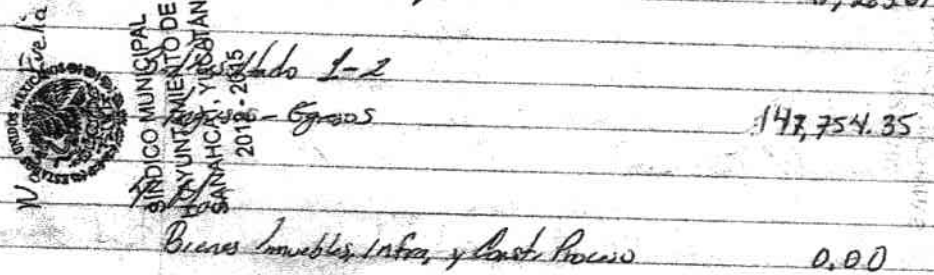 Evelia
ESTADOS UNIDOS MEXICANOS
SÍNDICO MUNICIPAL
H. AYUNTAMIENTO DE
SANAHCAT, YUCATÁN
2012-2015
Resultado 1-2
Ingresos - Egresos 147,754.35
Bienes Inmuebles, Infra, y Const. Proceso 0.00